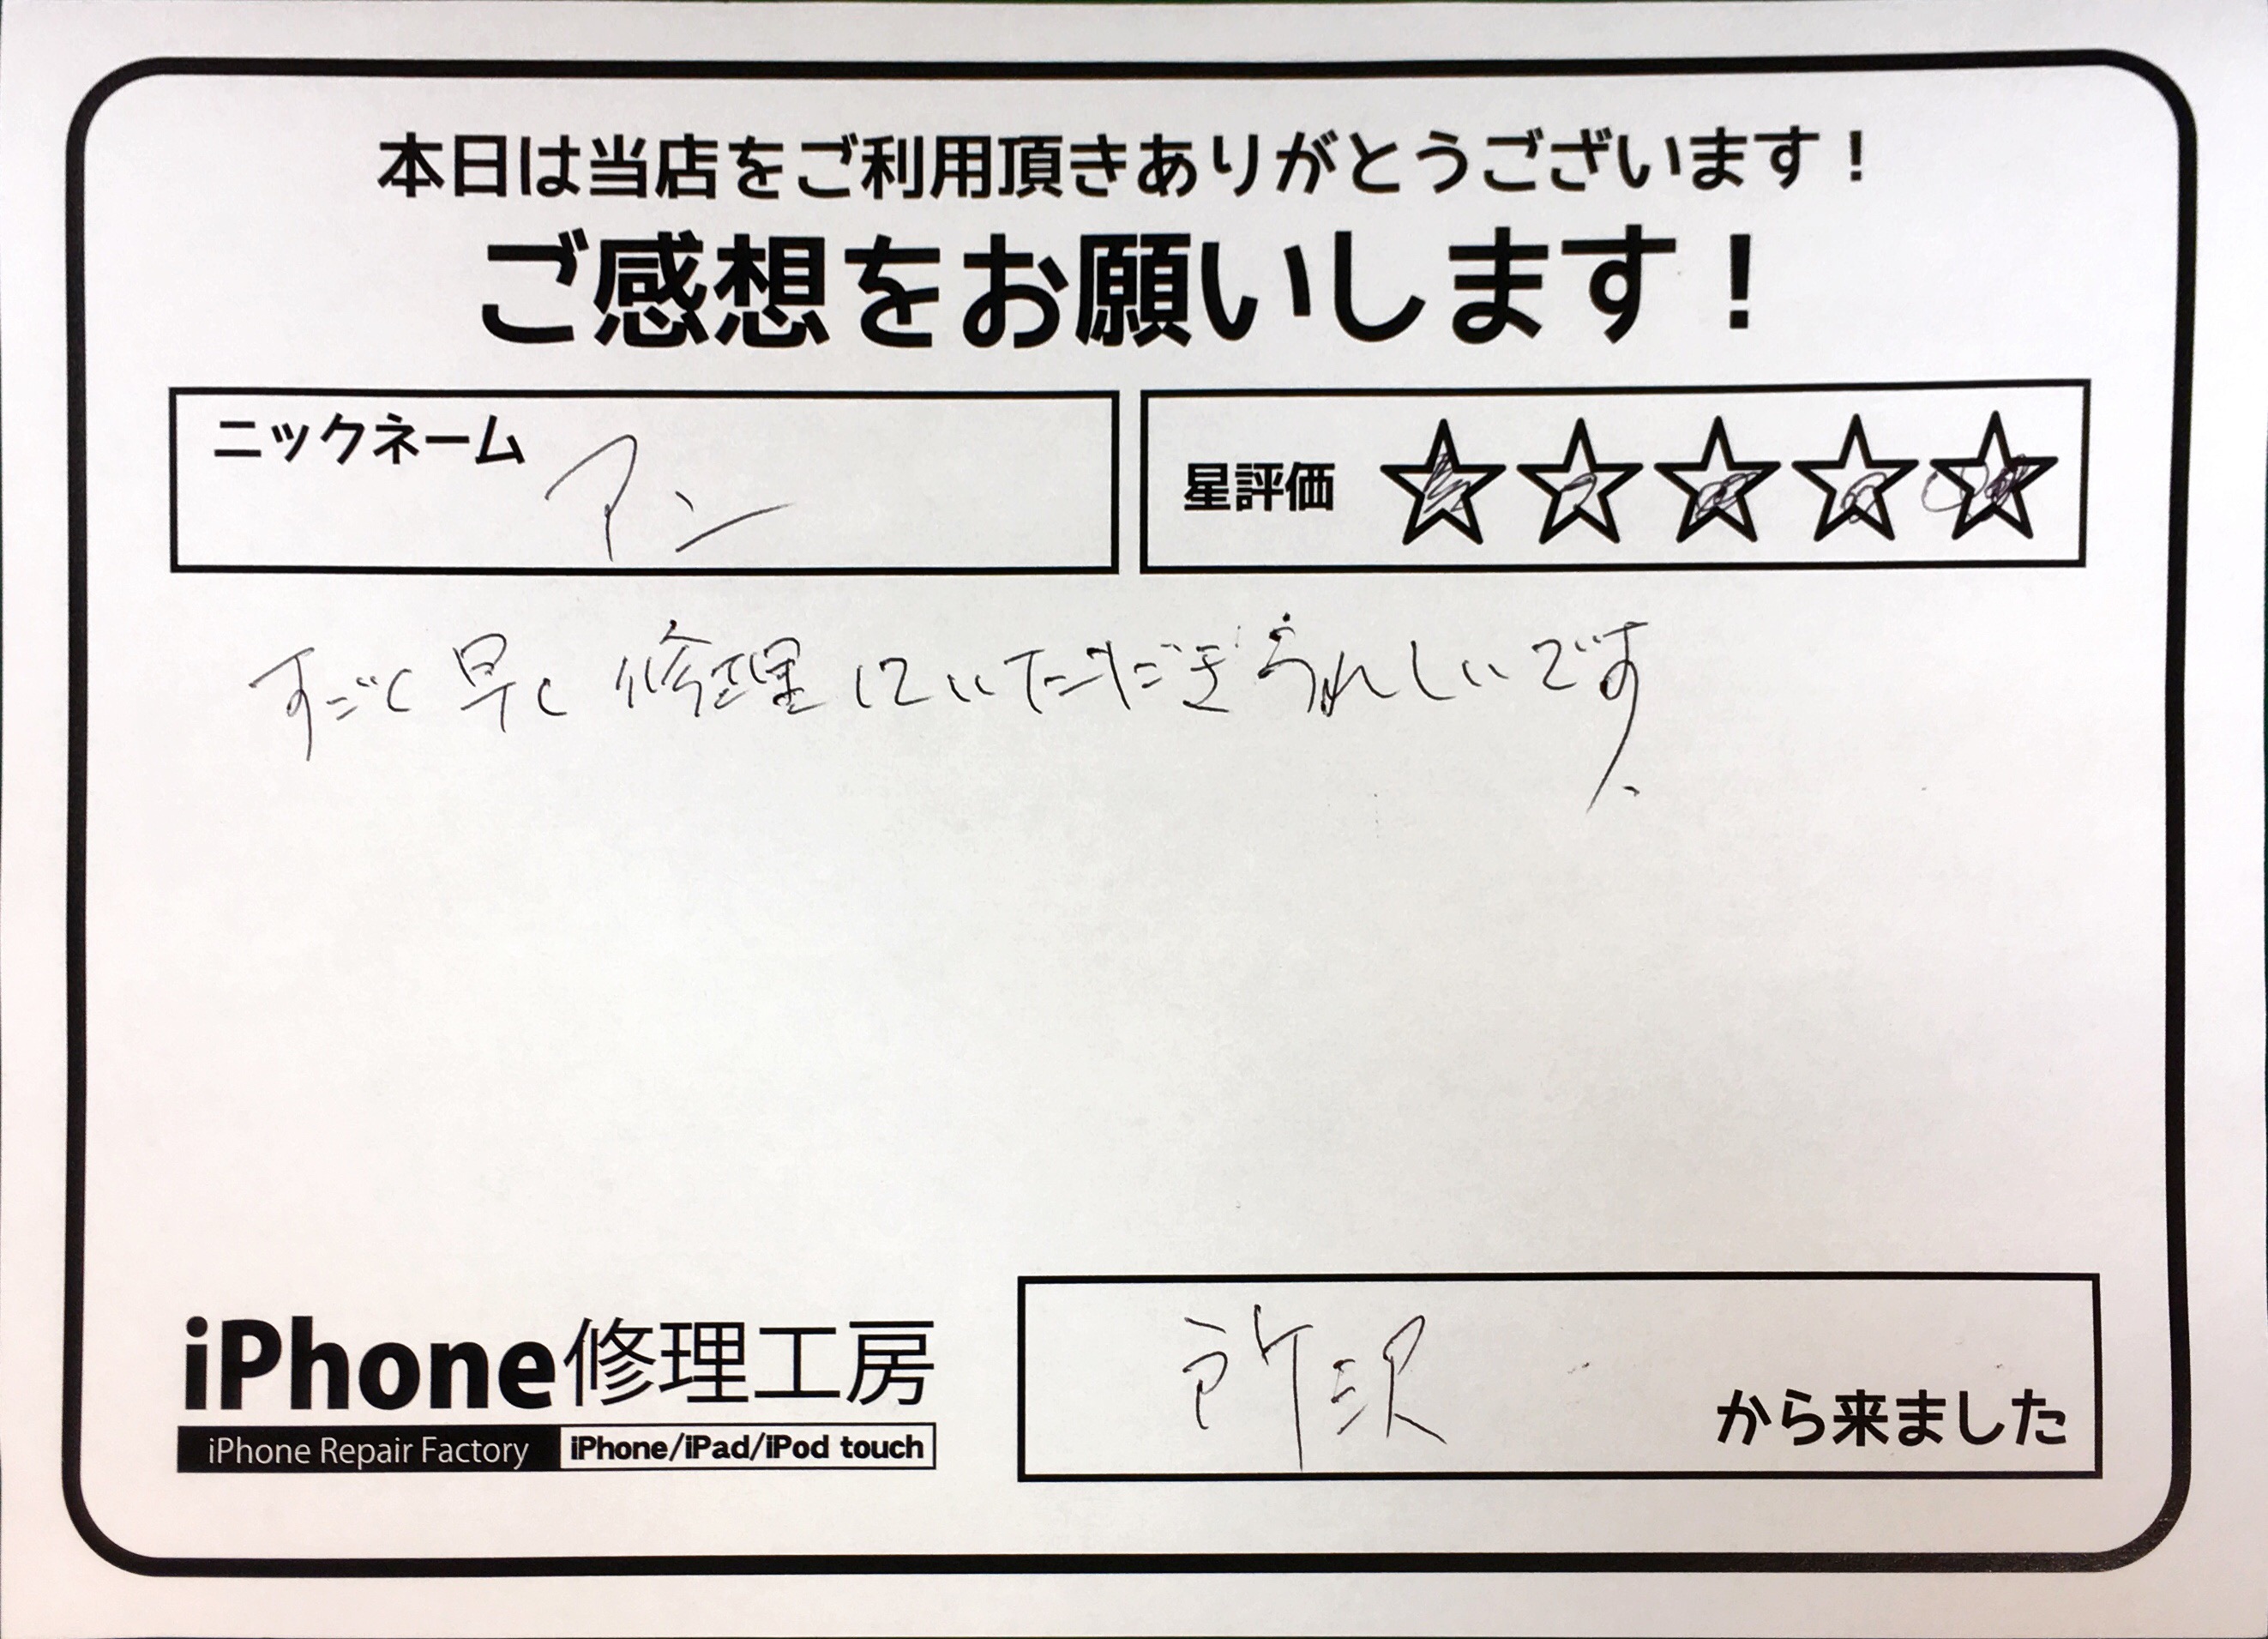 本日は当店をご利用頂きありがとうございます！
ご感想をお願いします！
ニックネーム アン
星評価 ☆☆☆☆☆
すごく早く修理していただきうれしいです。
iPhone修理工房
iPhone Repair Factory iPhone/iPad/iPod touch
所沢 から来ました